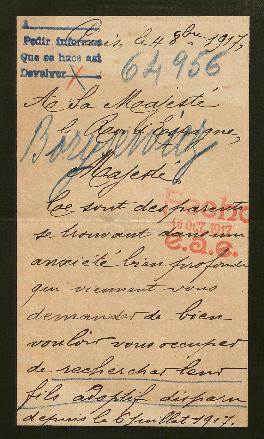 A
Pedir informes
Que se hace así
Devolver
Paris, le 4 8bre 1917,
64956
A Sa Majesté
le Roi d'Espagne,
Majesté,
Fecho
16 OCT. 1917
e.a.e.
Ce sont des parents
se trouvant dans une
anxiété bien profonde
qui viennent vous
demander de bien
vouloir vous occuper
de rechercher leur
fils adoptif disparu
depuis le 6 juillet 1917.